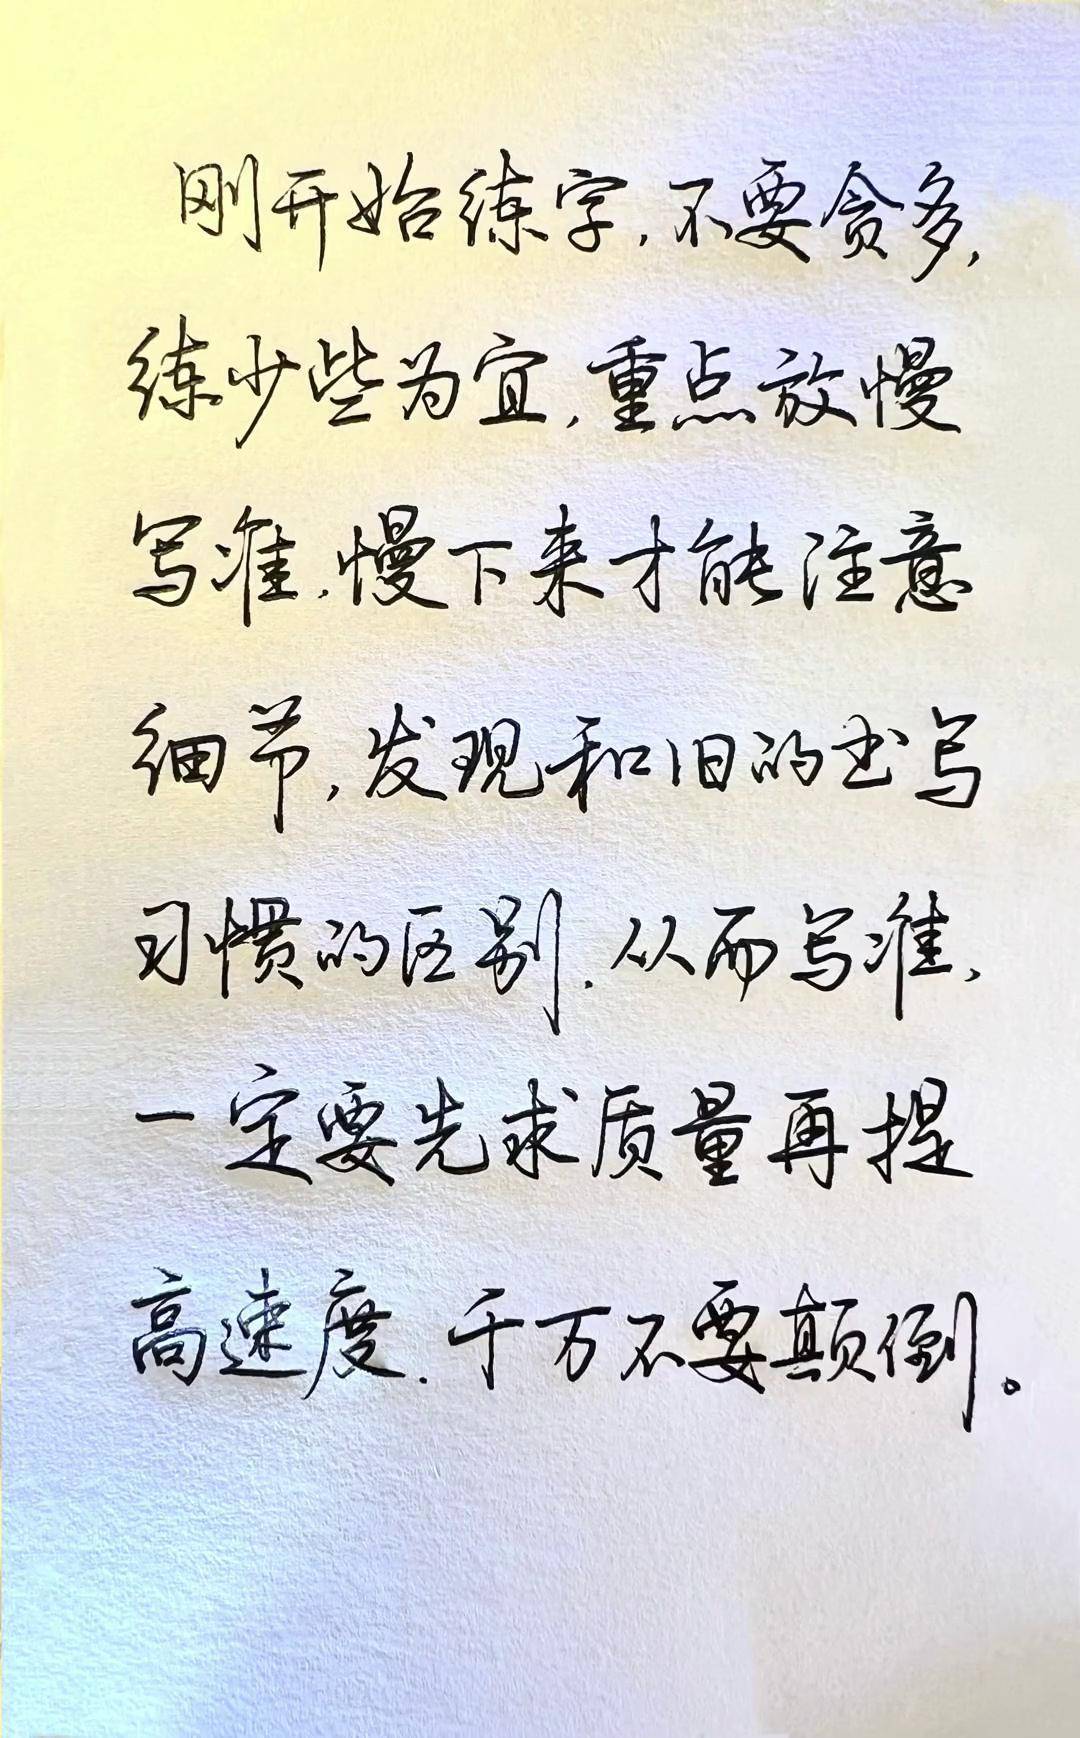 刚开始练字,不要贪多,
练少些为宜,重点放慢
写准,慢下来才能注意
细节,发现和旧的书写
习惯的区别,从而写准,
一定要先求质量再提
高速度,千万不要颠倒。